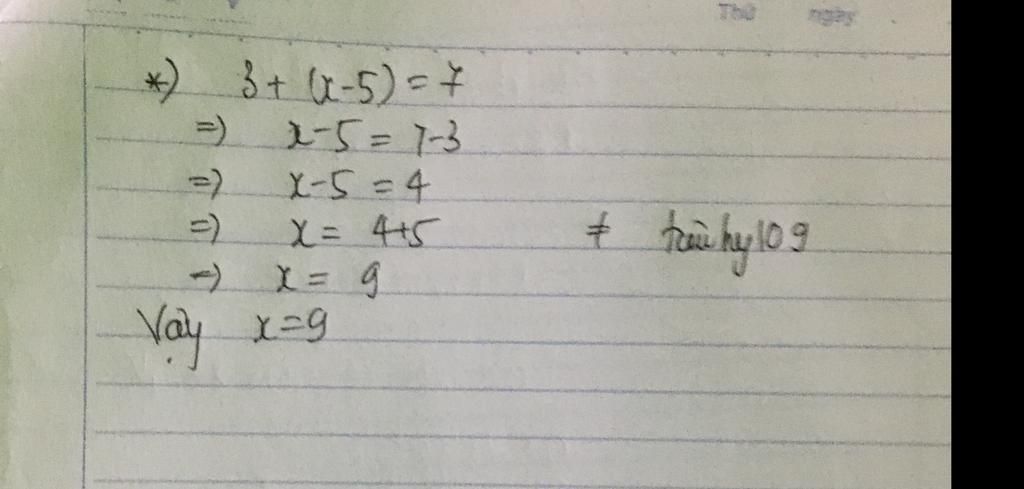 Thứ ngày
*) 3 + (x-5) = 7
=) x-5 = 7-3
=) x-5 = 4
=) x = 4+5 ≠ taiihy109
=) x = 9
Vậy x=9